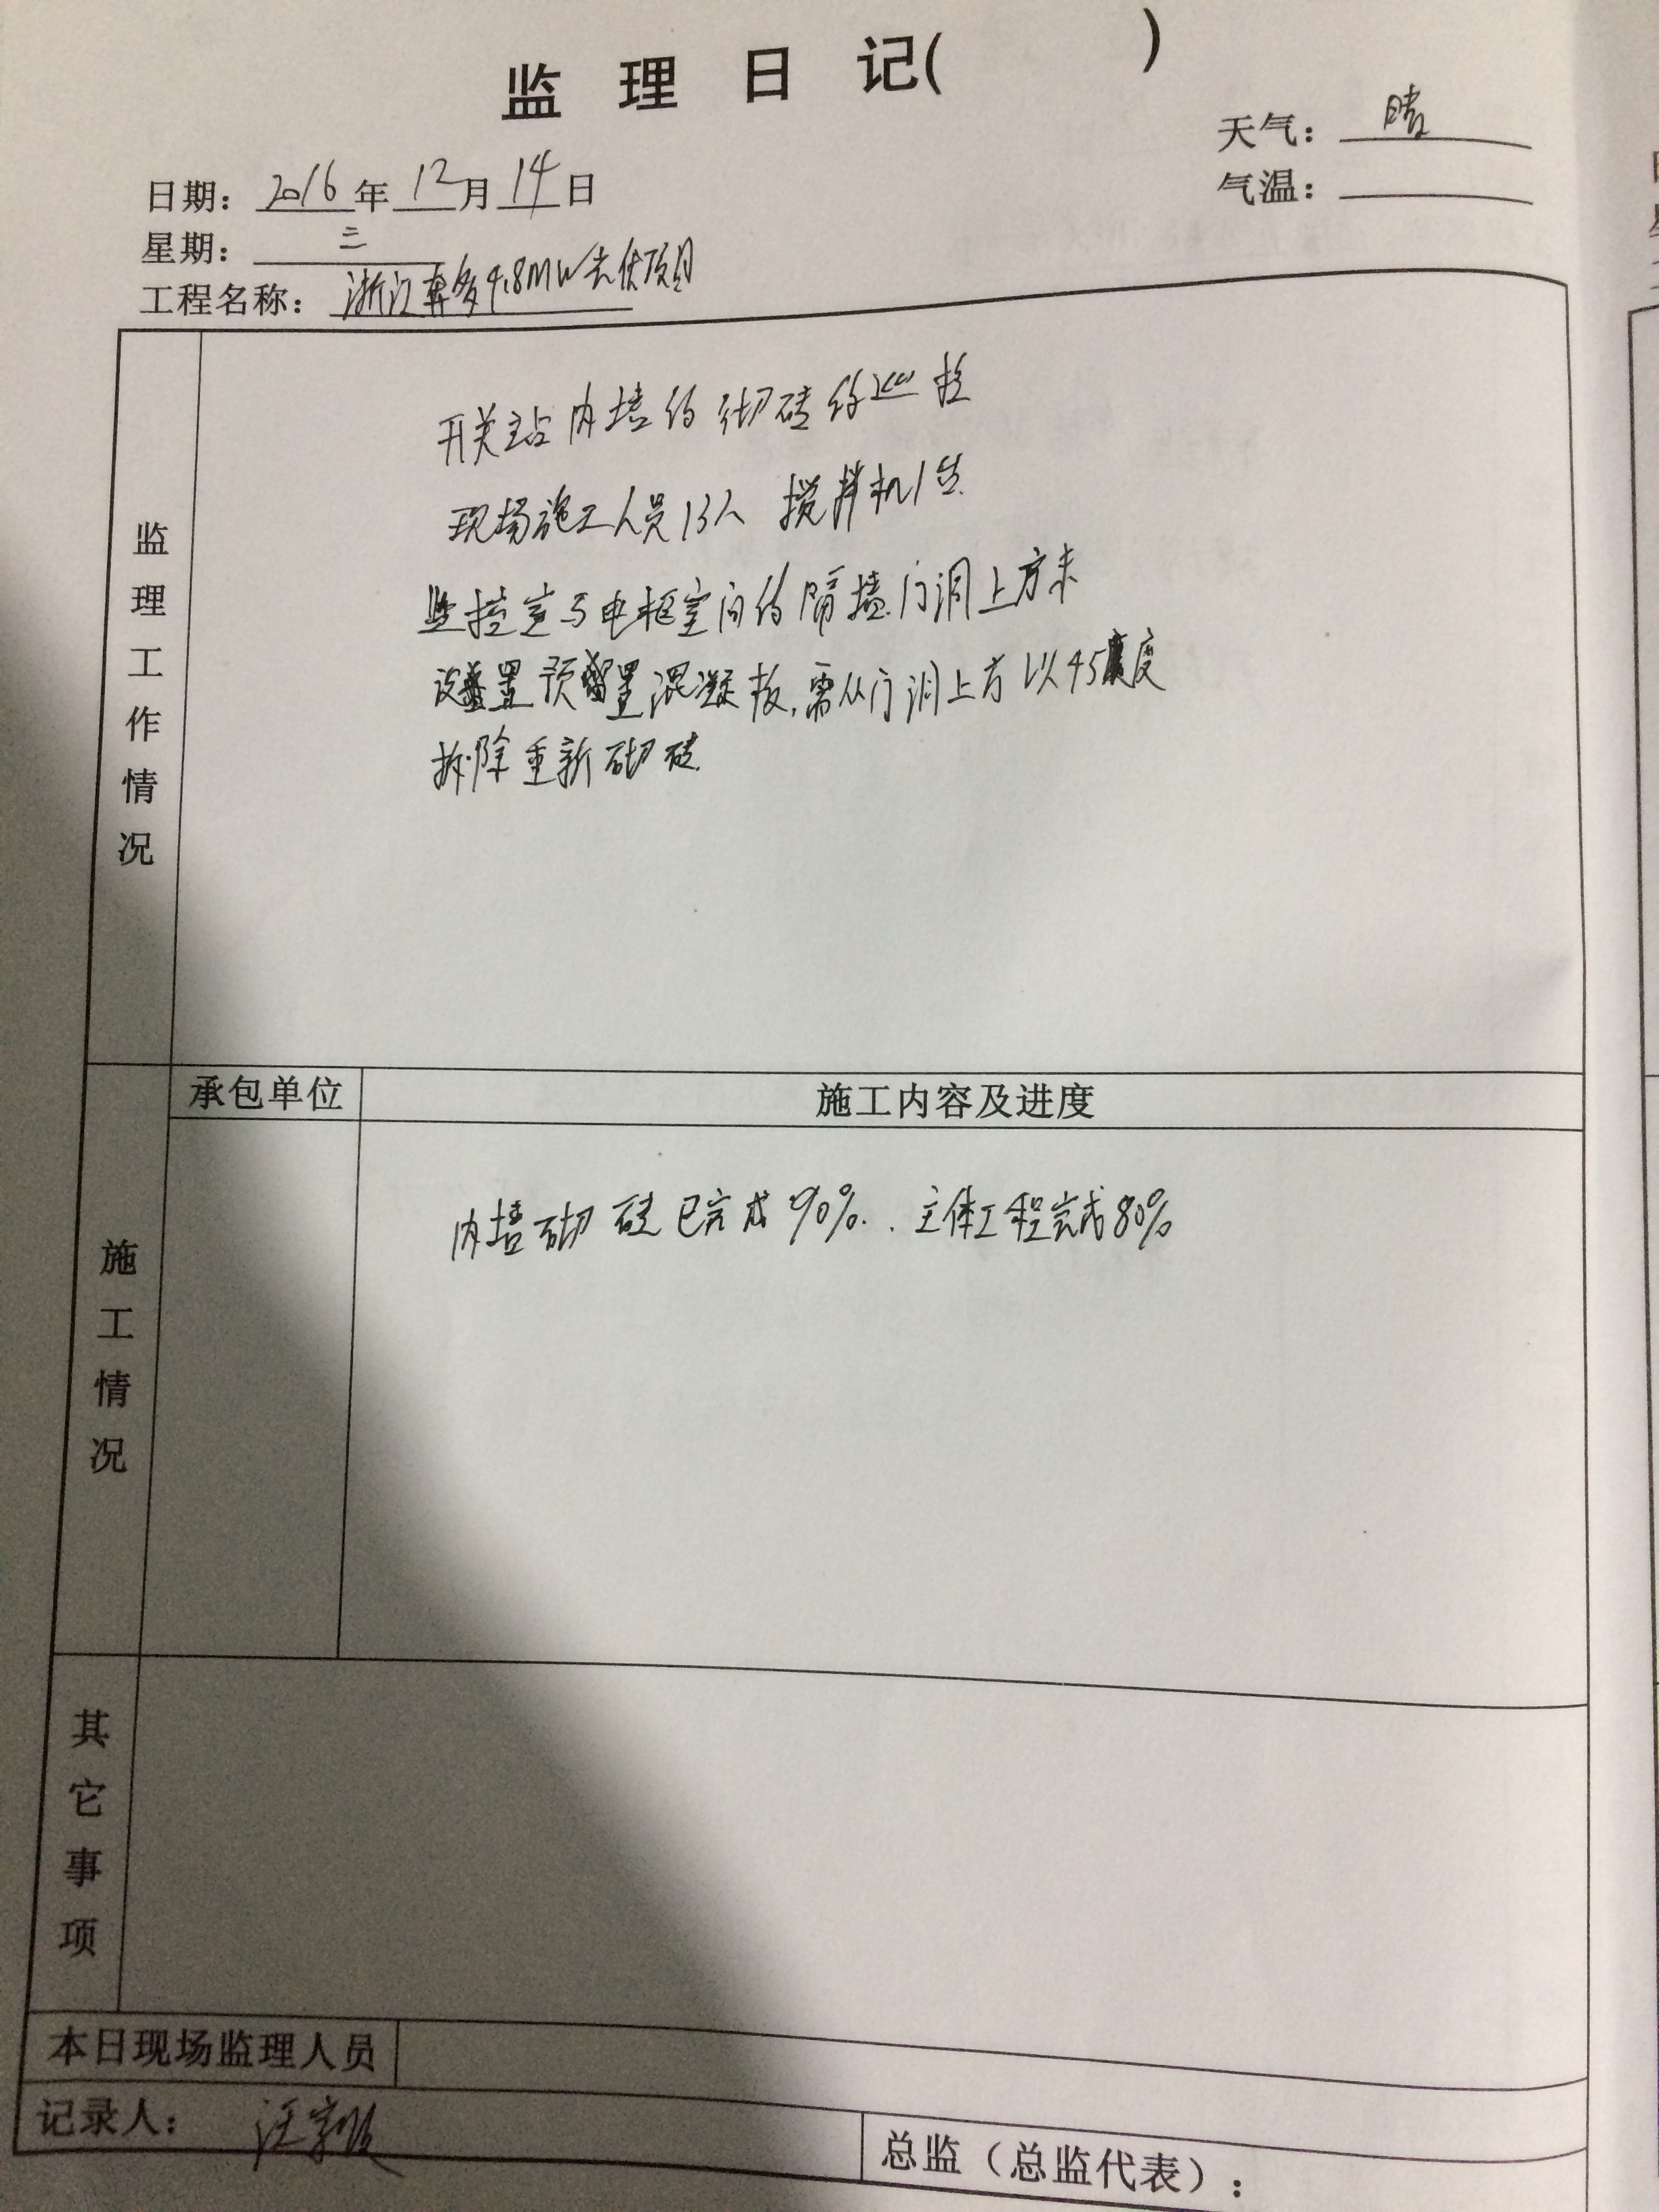 监理日记( )
天气：晴
日期：2016年12月14日
气温：
星期：三
工程名称：浙江 4.8MW光伏项目
监理工作情况
开关站内墙的砌砖的巡检
现场施工人员13人 搅拌机1台
监控室与电柜室间的隔墙门洞上方未
设置预留置混凝板,需从门洞上方以45度
拆除重新砌砖
施工情况
承包单位 施工内容及进度
内墙砌砖已完成90%. 主体工程完成80%
其它事项
本日现场监理人员
记录人：汪
总监（总监代表）：